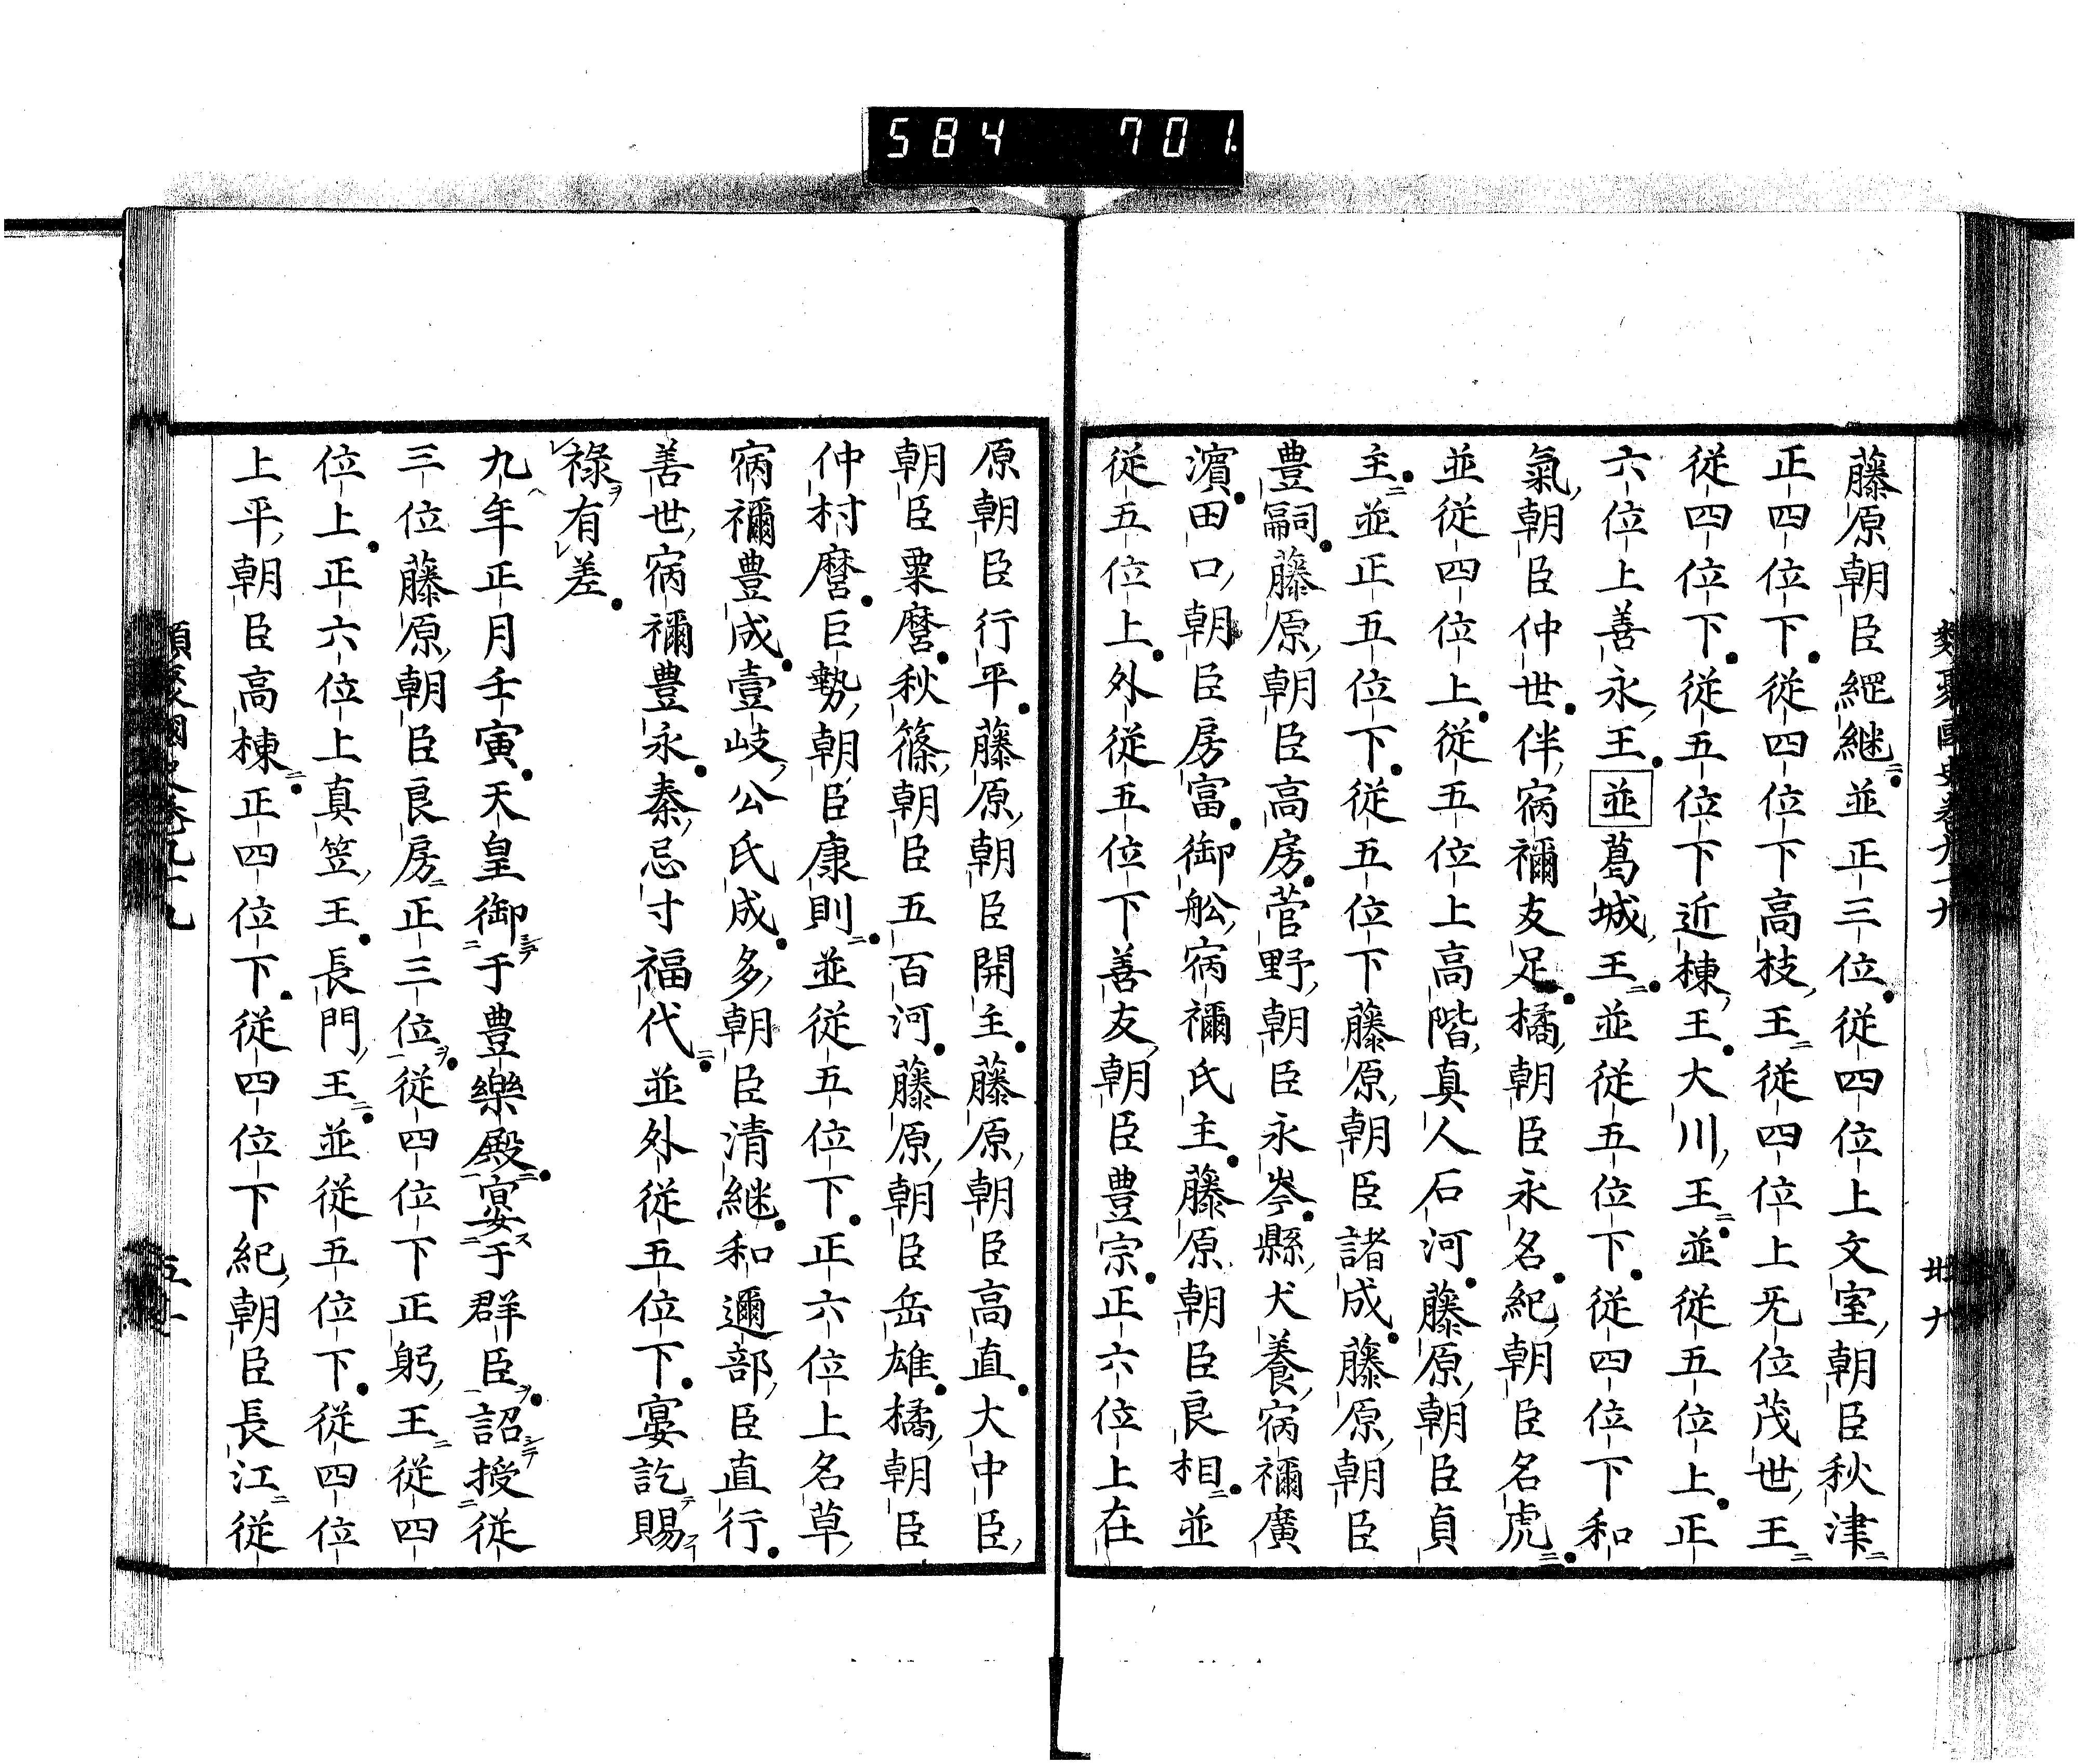 584 701.
藤原朝臣綛継並正三位従四位上文室朝臣秋津
正四位下従四位下高枝王従四位上无位茂世王
従四位下従五位下近棟王大川王並従五位上正
六位上善永王並葛城王並従五位下従四位下和
氣朝臣仲世伴宿禰友足橘朝臣永名紀朝臣名虎
並従四位上従五位上高階真人石河藤原朝臣貞
主並正五位下従五位下藤原朝臣諸成藤原朝臣
豊嗣藤原朝臣高房菅野朝臣永岑縣犬養宿禰廣
濵田口朝臣房富御舩宿禰氏主藤原朝臣良相並
従五位上外従五位下善友朝臣豊宗正六位上在
原朝臣行平藤原朝臣開主藤原朝臣高直大中臣
朝臣粟麿秋篠朝臣五百河藤原朝臣岳雄橘朝臣
仲村麿巨勢朝臣康則並従五位下正六位上名草
宿禰豊成壹岐公氏成多朝臣清継和邇部臣直行
善世宿禰豊永秦忌寸福代並外従五位下宴訖賜
禄有差
九年正月壬寅天皇御于豊樂殿宴于群臣詔授従
三位藤原朝臣良房正三位従四位下正躬王従四
位上正六位上真笠王長門王並従五位下従四位
上平朝臣高棟正四位下従四位下紀朝臣長江従